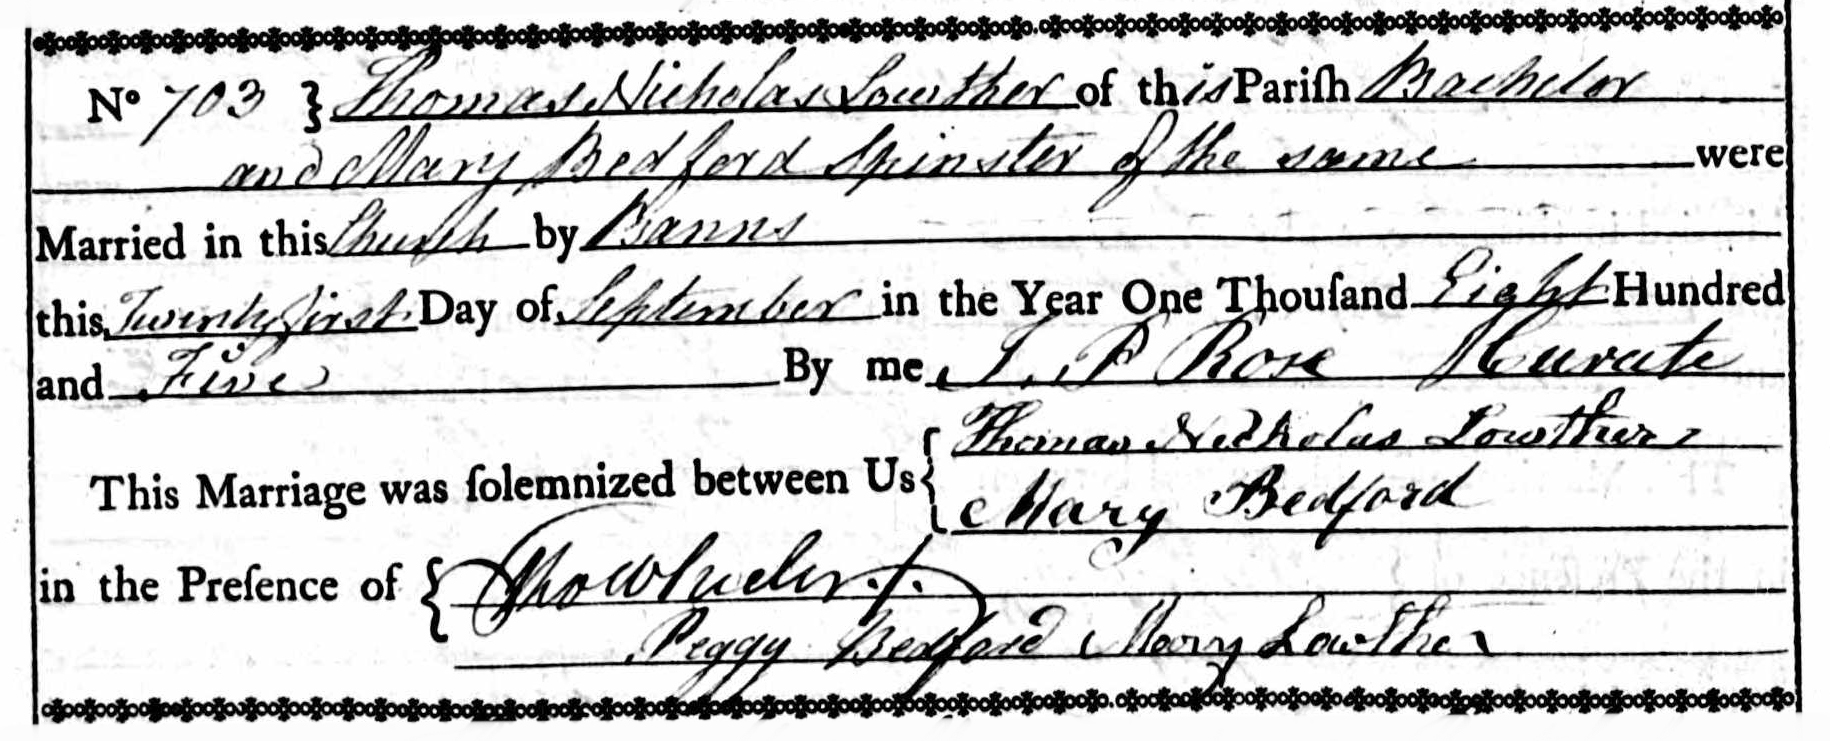 No 703 } Thomas Nicholas Lowther of this Pariſh Bachelor
and Mary Bedford Spinster of the same were
Married in this Church by Banns
this Twenty first Day of September in the Year One Thouſand Eight Hundred
and Five By me J. P Rose Curate
This Marriage was ſolemnized between Us { Thomas Nicholas Lowther
Mary Bedford
in the Preſence of {
Peggy Bedford Mary Lowther